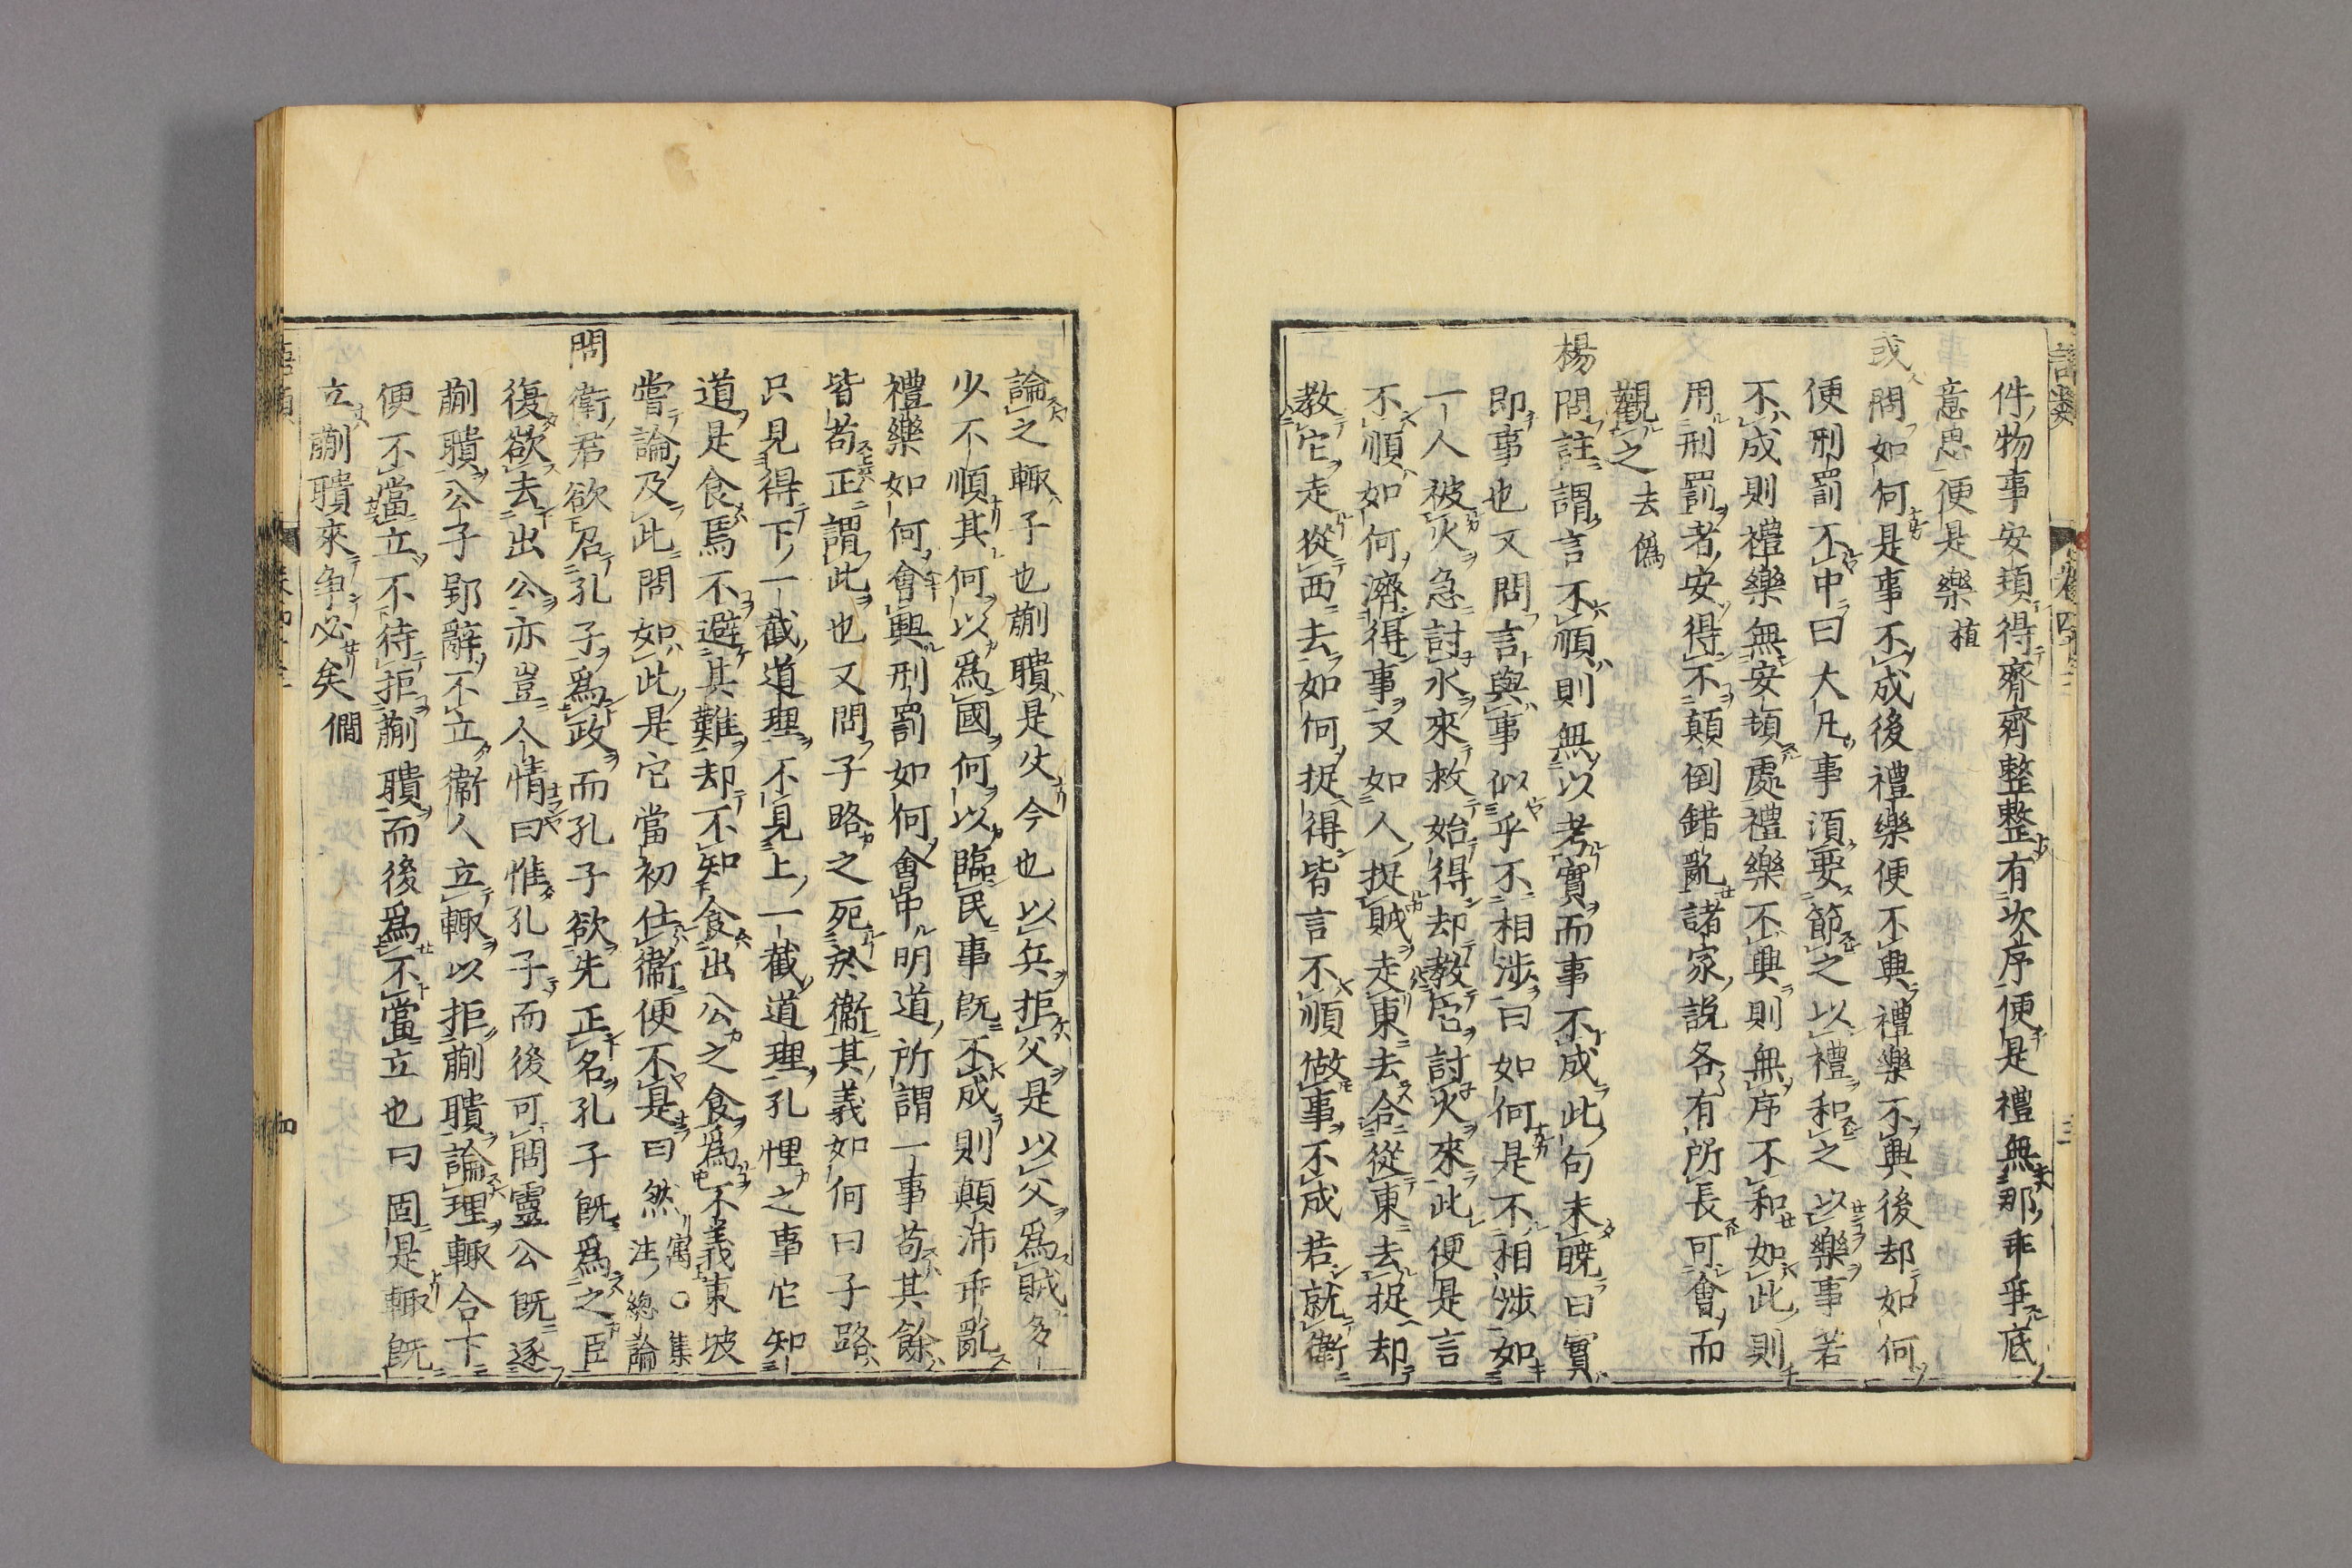 件物事安頓得齊齊整整有次序便是禮無那乖爭底
意思便是樂 植
或問如何是事不成後禮樂便不興禮樂不興後却如何
便刑罰不中曰大凡事須要節之以禮和之以樂事若
不成則禮樂無安頓處禮樂不興則無序不和如此則
用刑罰者安得不顛倒錯亂諸家說各有所長可會而
觀之 去僞
楊問註謂言不順則無以考實而事不成此句未曉曰實
即事也又問言與事似乎不相涉曰如何是不相涉如
一人被火急討水來救始得却教它討火來此便是言
不順如何濟得事又如人捉賊走東去合從東去捉却
教它走從西去如何捉得皆言不順做事不成若就衛
論之輙子也蒯聵是父今也以兵拒父是以父爲賊多
少不順其何以爲國何以臨民事既不成則顛沛乖亂
禮樂如何會興刑罰如何會中明道所謂一事苟其餘
皆苟正謂此也又問子路之死於衛其義如何曰子路
只見得下一截道理不見上一截道理孔悝之事它知
道是食焉不避其難却不知食出公之食爲不義東坡
嘗論及此問如此是它當初仕衛便不是曰然 㝢○集注總論
問衛君欲召孔子爲政而孔子欲先正名孔子既爲之臣
復欲去出公亦豈人情曰惟孔子而後可問靈公既逐
蒯聵公子郢辭不立衛人立輙以拒蒯聵論理輙合下
便不當立不待拒蒯聵而後爲不當立也曰固是輙既
立蒯聵來争必矣 僩